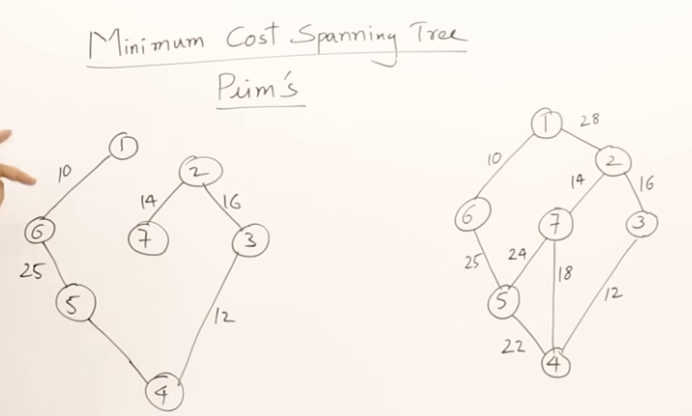 Minimum Cost Spanning Tree
Prim's
1
10
2
14
16
6
7
3
25
5
12
4
1
28
10
2
14
16
6
7
3
25
24
18
5
12
22
4